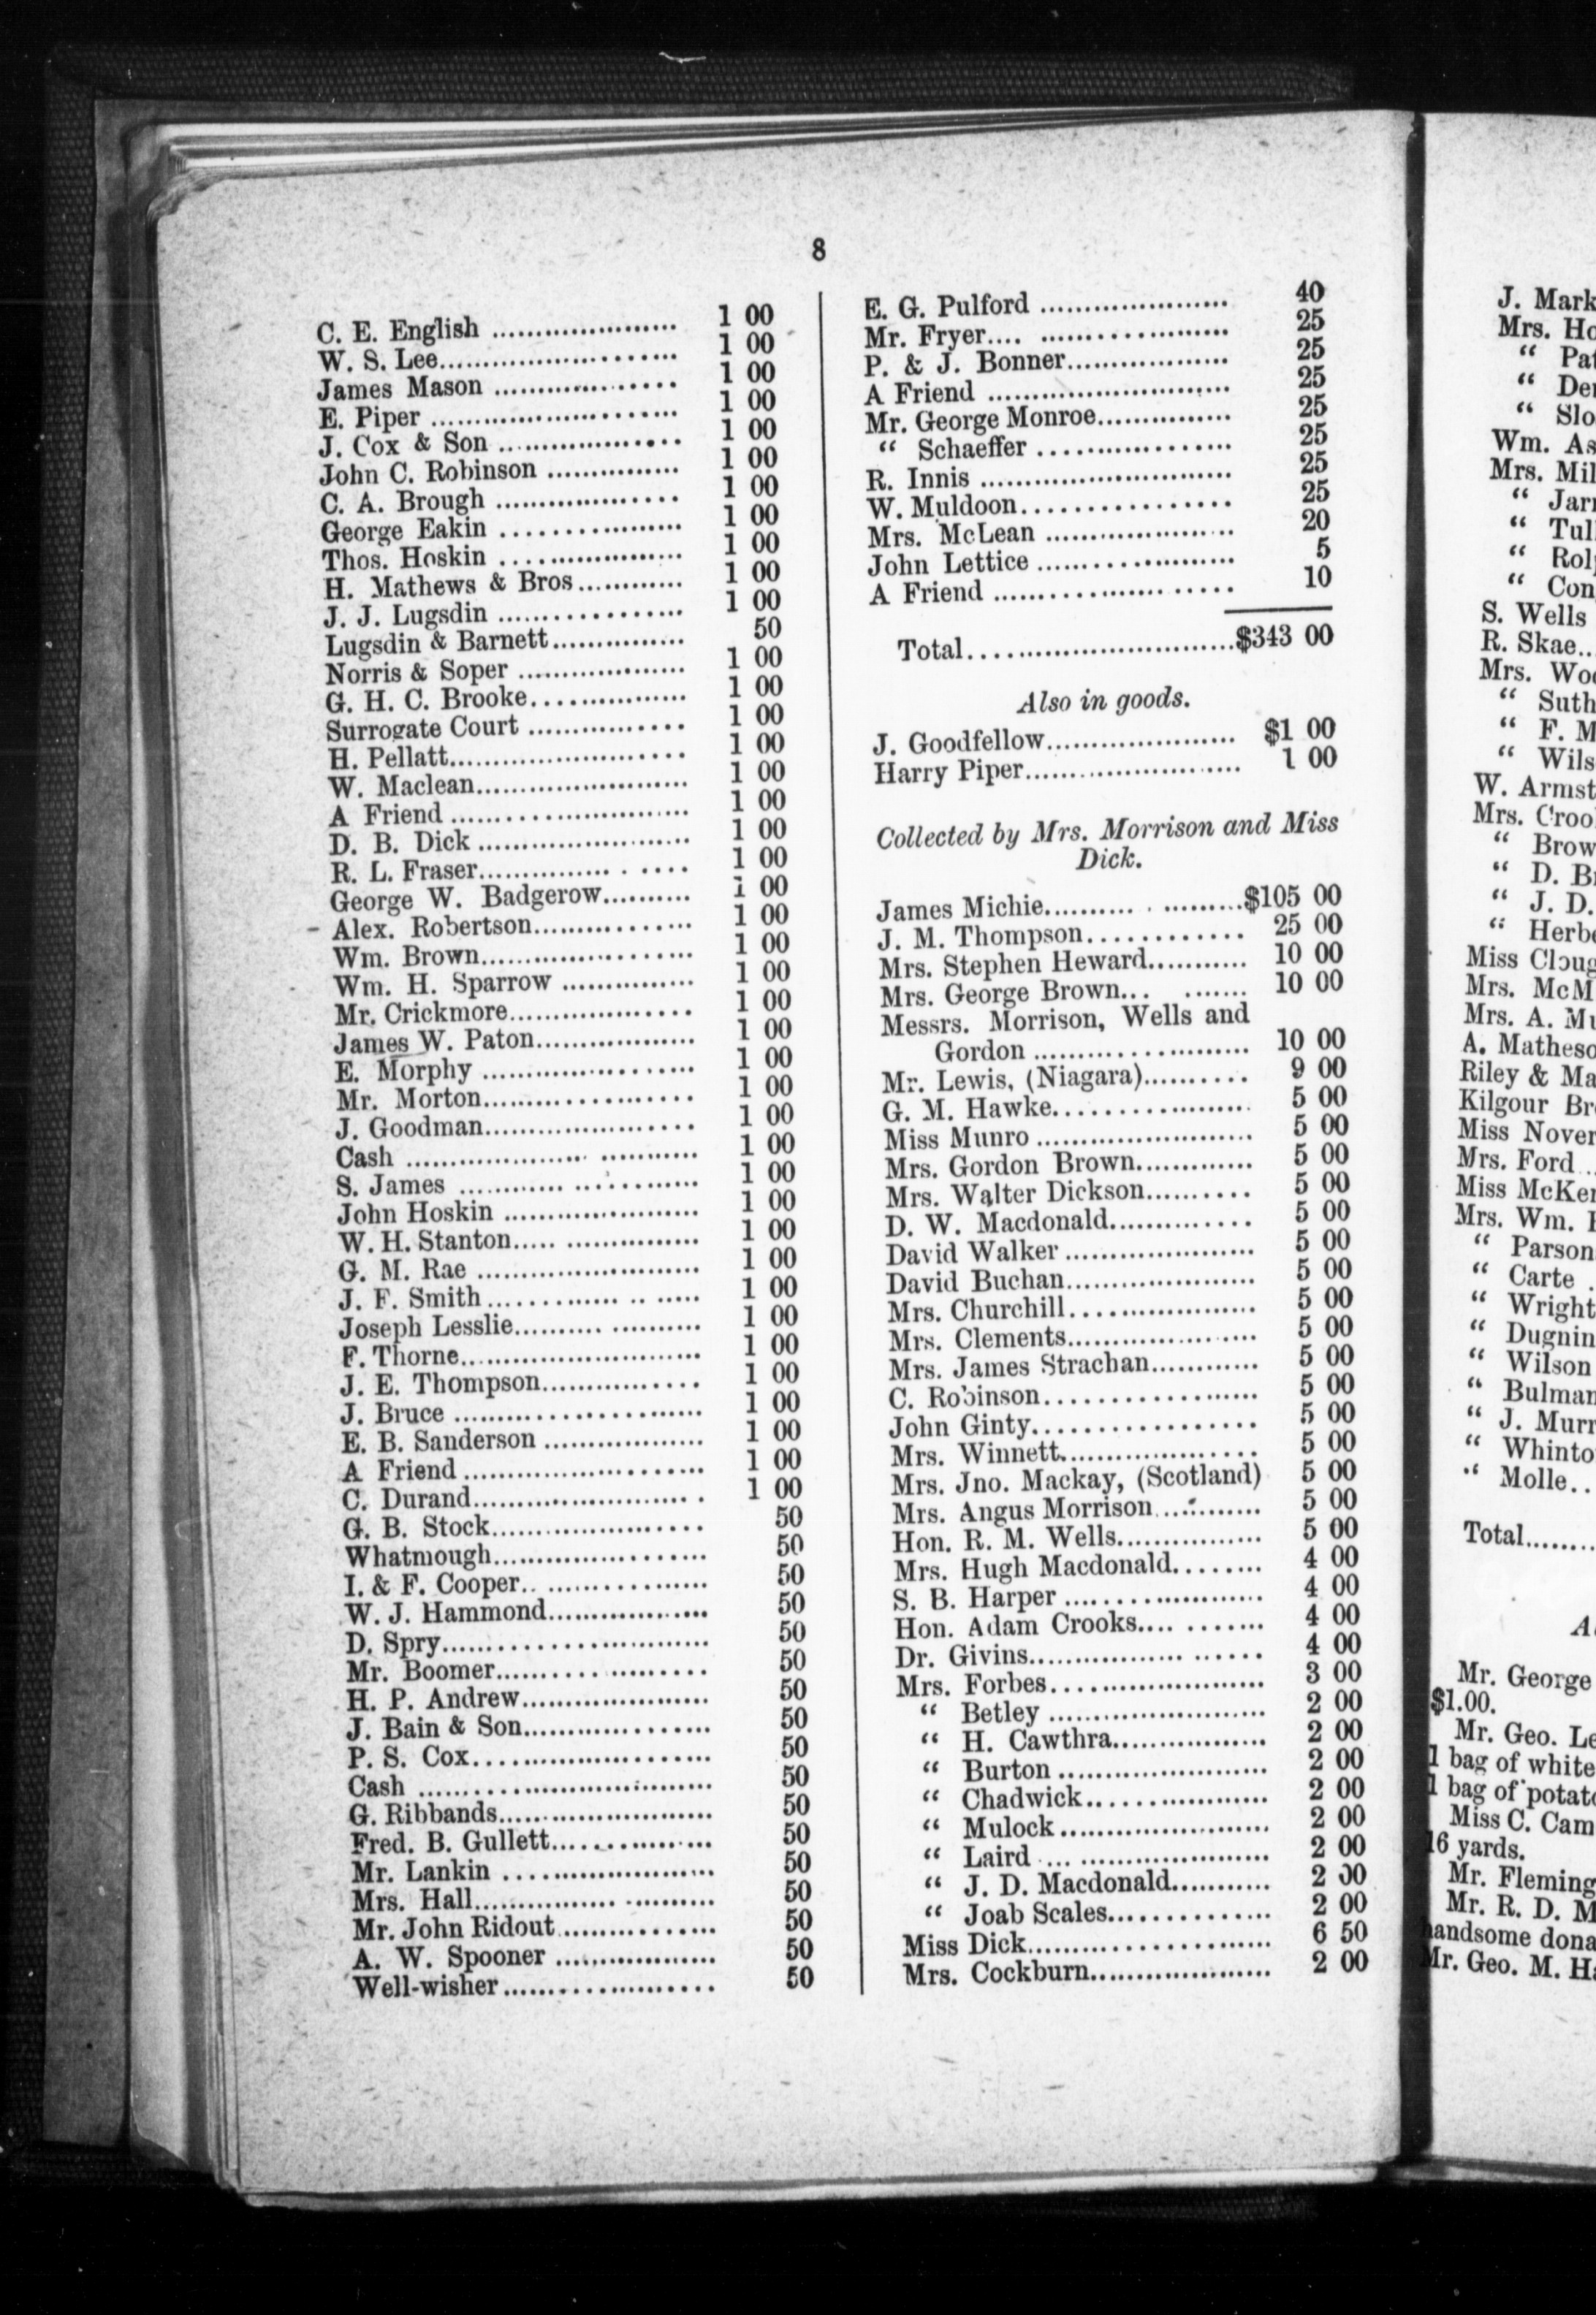 8
C. E. English ..................... 1 00
W. S. Lee..................... 1 00
James Mason ..................... 1 00
E. Piper ..................... 1 00
J. Cox & Son ..................... 1 00
John C. Robinson ............... 1 00
C. A. Brough ................... 1 00
George Eakin ................... 1 00
Thos. Hoskin ................... 1 00
H. Mathews & Bros............ 1 00
J. J. Lugsdin ................... 1 00
Lugsdin & Barnett............... 50
Norris & Soper ................... 1 00
G. H. C. Brooke................ 1 00
Surrogate Court ................ 1 00
H. Pellatt......................... 1 00
W. Maclean....................... 1 00
A Friend ......................... 1 00
D. B. Dick ....................... 1 00
R. L. Fraser..................... 1 00
George W. Badgerow.......... 1 00
Alex. Robertson................. 1 00
Wm. Brown....................... 1 00
Wm. H. Sparrow ............... 1 00
Mr. Crickmore................... 1 00
James W. Paton................. 1 00
E. Morphy ....................... 1 00
Mr. Morton....................... 1 00
J. Goodman....................... 1 00
Cash ............................... 1 00
S. James ......................... 1 00
John Hoskin ..................... 1 00
W. H. Stanton.................... 1 00
G. M. Rae ........................ 1 00
J. F. Smith....................... 1 00
Joseph Lesslie................... 1 00
F. Thorne......................... 1 00
J. E. Thompson................. 1 00
J. Bruce ........................... 1 00
E. B. Sanderson ................. 1 00
A Friend ......................... 1 00
C. Durand......................... 1 00
G. B. Stock....................... 50
Whatmough....................... 50
I. & F. Cooper................... 50
W. J. Hammond................. 50
D. Spry............................. 50
Mr. Boomer....................... 50
H. P. Andrew..................... 50
J. Bain & Son..................... 50
P. S. Cox......................... 50
Cash ............................... 50
G. Ribbands....................... 50
Fred. B. Gullett................. 50
Mr. Lankin ....................... 50
Mrs. Hall......................... 50
Mr. John Ridout................. 50
A. W. Spooner ................. 50
Well-wisher....................... 50
E. G. Pulford ..................... 40
Mr. Fryer......................... 25
P. & J. Bonner................... 25
A Friend ......................... 25
Mr. George Monroe............... 25
“ Schaeffer ................... 25
R. Innis ........................... 25
W. Muldoon....................... 25
Mrs. McLean ..................... 20
John Lettice ..................... 5
A Friend ......................... 10
Total.............................$343 00
Also in goods.
J. Goodfellow..................... $1 00
Harry Piper....................... 1 00
Collected by Mrs. Morrison and Miss
Dick.
James Michie.....................$105 00
J. M. Thompson............. 25 00
Mrs. Stephen Heward........... 10 00
Mrs. George Brown... ....... 10 00
Messrs. Morrison, Wells and
Gordon ....................... 10 00
Mr. Lewis, (Niagara).......... 9 00
G. M. Hawke..................... 5 00
Miss Munro ....................... 5 00
Mrs. Gordon Brown............. 5 00
Mrs. Walter Dickson.......... 5 00
D. W. Macdonald.............. 5 00
David Walker ..................... 5 00
David Buchan..................... 5 00
Mrs. Churchill................... 5 00
Mrs. Clements................... 5 00
Mrs. James Strachan............ 5 00
C. Robinson....................... 5 00
John Ginty....................... 5 00
Mrs. Winnett..................... 5 00
Mrs. Jno. Mackay, (Scotland) 5 00
Mrs. Angus Morrison............ 5 00
Hon. R. M. Wells................ 5 00
Mrs. Hugh Macdonald........ 4 00
S. B. Harper ..................... 4 00
Hon. Adam Crooks.... ........ 4 00
Dr. Givins......................... 4 00
Mrs. Forbes....................... 3 00
“ Betley ....................... 2 00
“ H. Cawthra................. 2 00
“ Burton ....................... 2 00
“ Chadwick................... 2 00
“ Mulock ....................... 2 00
“ Laird ......................... 2 00
“ J. D. Macdonald........... 2 00
“ Joab Scales............... 2 00
Miss Dick......................... 6 50
Mrs. Cockburn................... 2 00
J. Mark
Mrs. Ho
“ Pat
“
“ Slo
Wm. As
Mrs. Mil
“ Jar
“ Tul
“ Rol
“ Con
S. Wells
R. Skae..
Mrs. Woo
“ Suth
“ F. M
“ Wils
W. Armst
Mrs. Croo
“ Brow
“ D. B
“ J. D.
“ Herbe
Miss Cloug
Mrs. McM
Mrs. A. Mu
A. Matheso
Riley & Ma
Kilgour Br
Miss Nover
Mrs. Ford ..
Miss McKe
Mrs. Wm.
“ Parson
“ Carte .
“ Wright
“ Dugnin
“ Wilson
“ Bulman
“ J. Murr
“ Whinto
“ Molle..
Total........
A
Mr. George
$1.00.
Mr. Geo. Le
1 bag of white
1 bag of potato
Miss C. Cam
16 yards.
Mr. Fleming
Mr. R. D. M
handsome dona
Mr. Geo. M. Ha